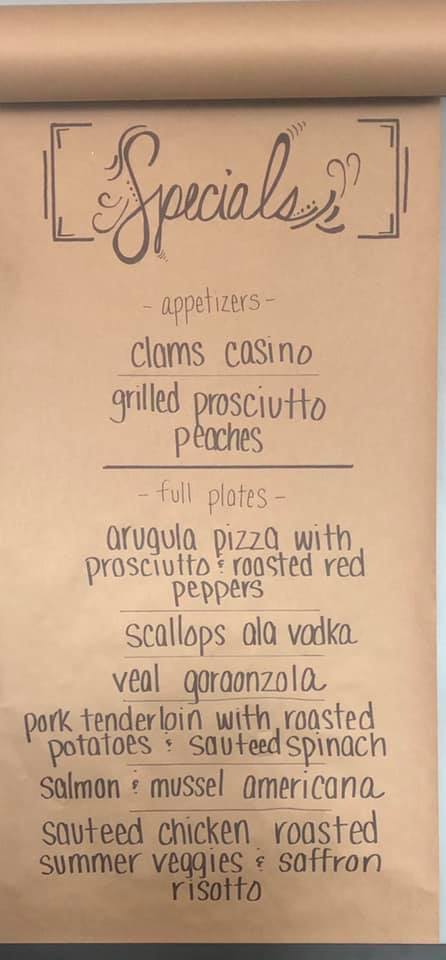 Specials
- appetizers -
clams casino
grilled prosciutto
peaches
- full plates -
arugula pizza with
prosciutto & roasted red
peppers
scallops ala vodka
veal gorgonzola
pork tenderloin with roasted
potatoes & sauteed spinach
salmon & mussel americana
sauteed chicken roasted
summer veggies & saffron
risotto